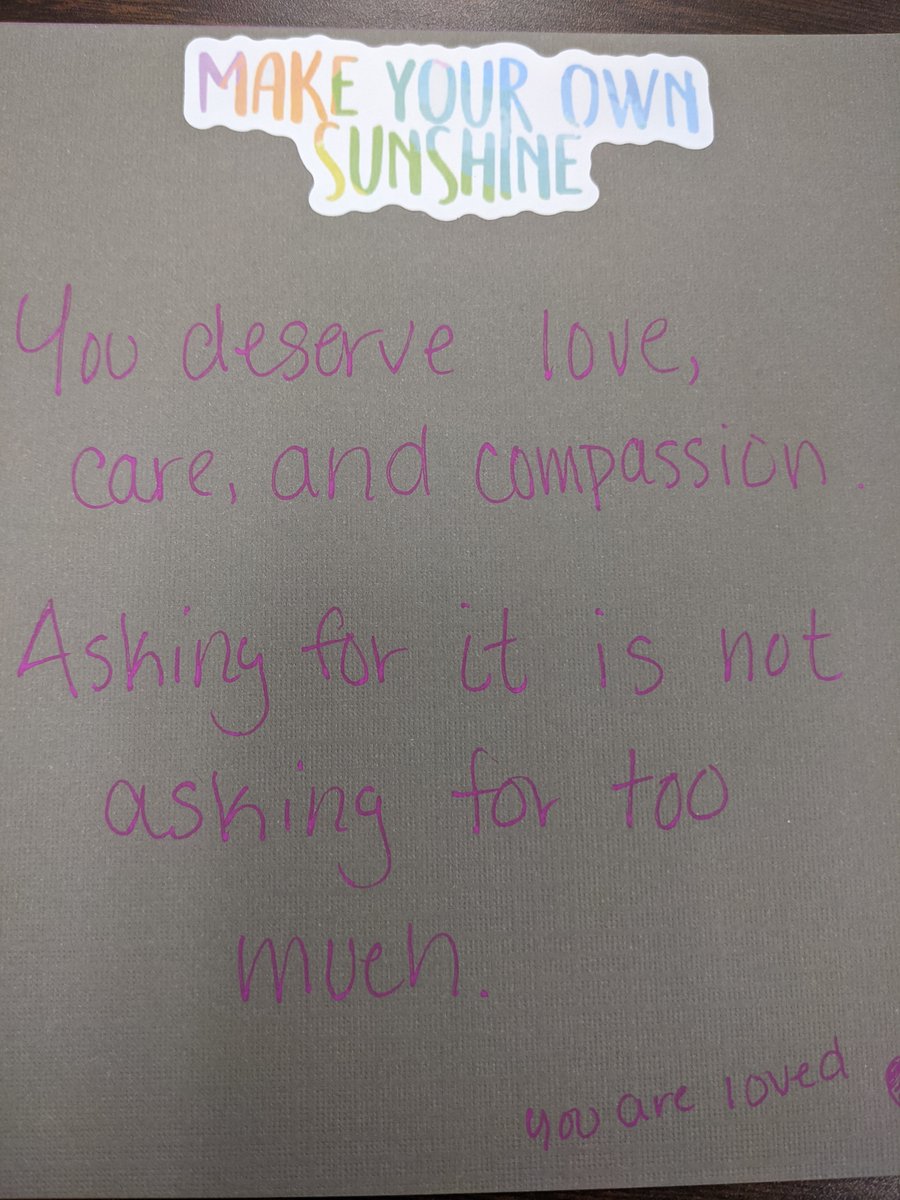 MAKE YOUR OWN
SUNSHINE
You deserve love,
care, and compassion.
Asking for it is not
asking for too
much.
you are loved